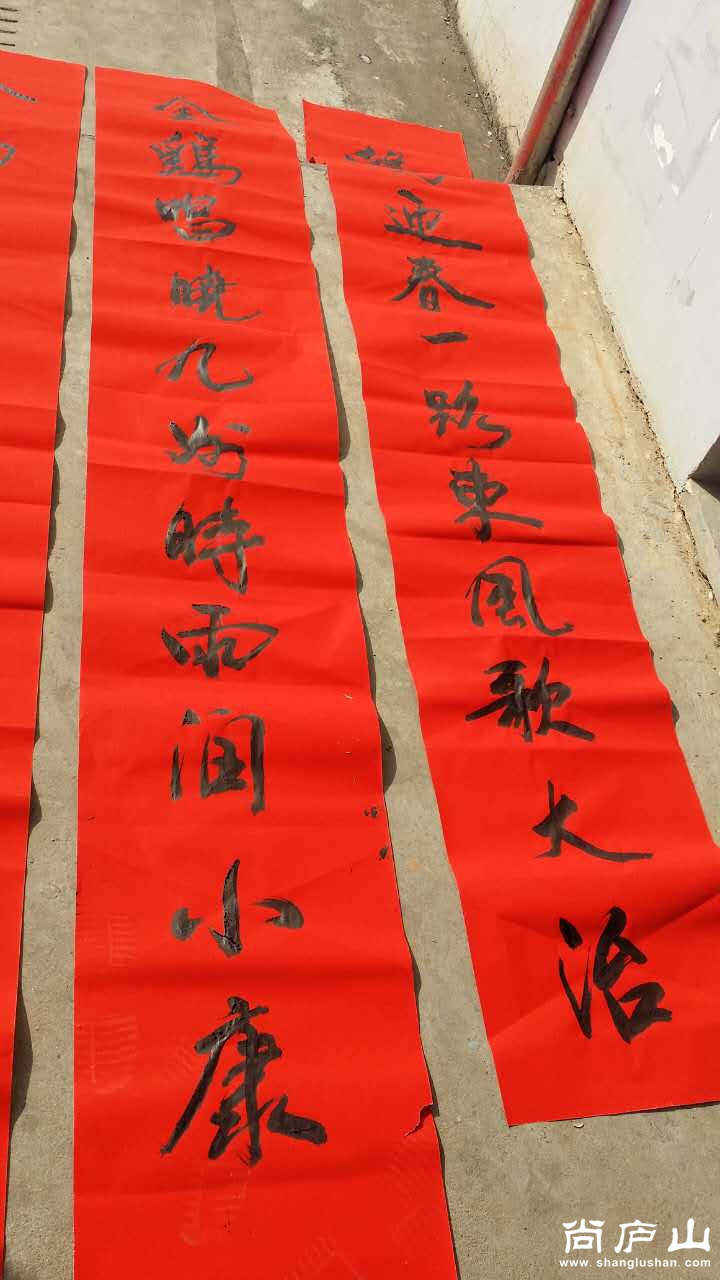 迎春一路東風歌大治
金鷄鳴曉九州時雨潤小康
尚庐山
www.shanglushan.com